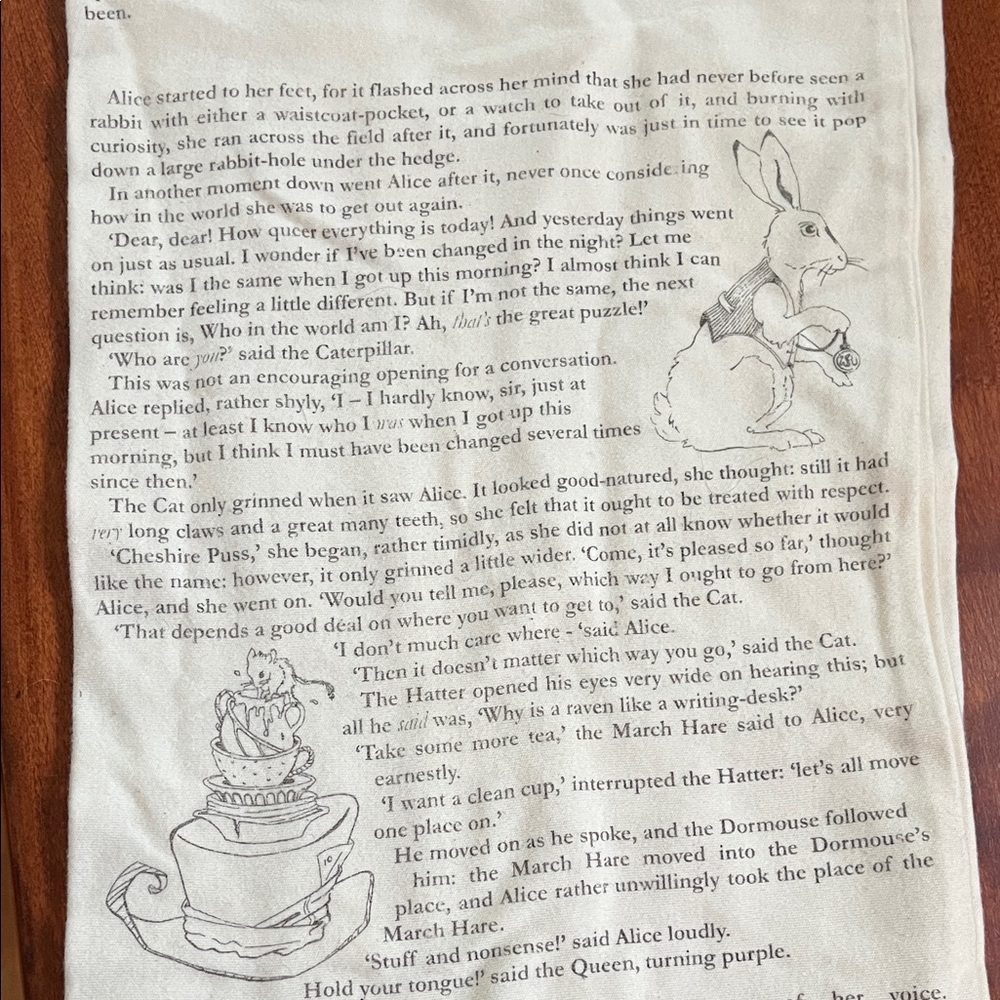 been.
Alice started to her feet, for it flashed across her mind that she had never before seen a
rabbit with either a waistcoat-pocket, or a watch to take out of it, and burning with
curiosity, she ran across the field after it, and fortunately was just in time to see it pop
down a large rabbit-hole under the hedge.
In another moment down went Alice after it, never once considering
how in the world she was to get out again.
‘Dear, dear! How queer everything is today! And yesterday things went
on just as usual. I wonder if I’ve been changed in the night? Let me
think: was I the same when I got up this morning? I almost think I can
remember feeling a little different. But if I’m not the same, the next
question is, Who in the world am I? Ah, that’s the great puzzle!’
‘Who are you?’ said the Caterpillar.
This was not an encouraging opening for a conversation.
Alice replied, rather shyly, ‘I – I hardly know, sir, just at
present – at least I know who I was when I got up this
morning, but I think I must have been changed several times
since then.’
The Cat only grinned when it saw Alice. It looked good-natured, she thought: still it had
very long claws and a great many teeth, so she felt that it ought to be treated with respect.
‘Cheshire Puss,’ she began, rather timidly, as she did not at all know whether it would
like the name: however, it only grinned a little wider. ‘Come, it’s pleased so far,’ thought
Alice, and she went on. ‘Would you tell me, please, which way I ought to go from here?’
‘That depends a good deal on where you want to get to,’ said the Cat.
‘I don’t much care where - ‘said Alice.
‘Then it doesn’t matter which way you go,’ said the Cat.
The Hatter opened his eyes very wide on hearing this; but
all he said was, ‘Why is a raven like a writing-desk?’
‘Take some more tea,’ the March Hare said to Alice, very
earnestly.
‘I want a clean cup,’ interrupted the Hatter: ‘let’s all move
one place on.’
He moved on as he spoke, and the Dormouse followed
him: the March Hare moved into the Dormouse’s
place, and Alice rather unwillingly took the place of the
March Hare.
‘Stuff and nonsense!’ said Alice loudly.
Hold your tongue!’ said the Queen, turning purple.
her voice.